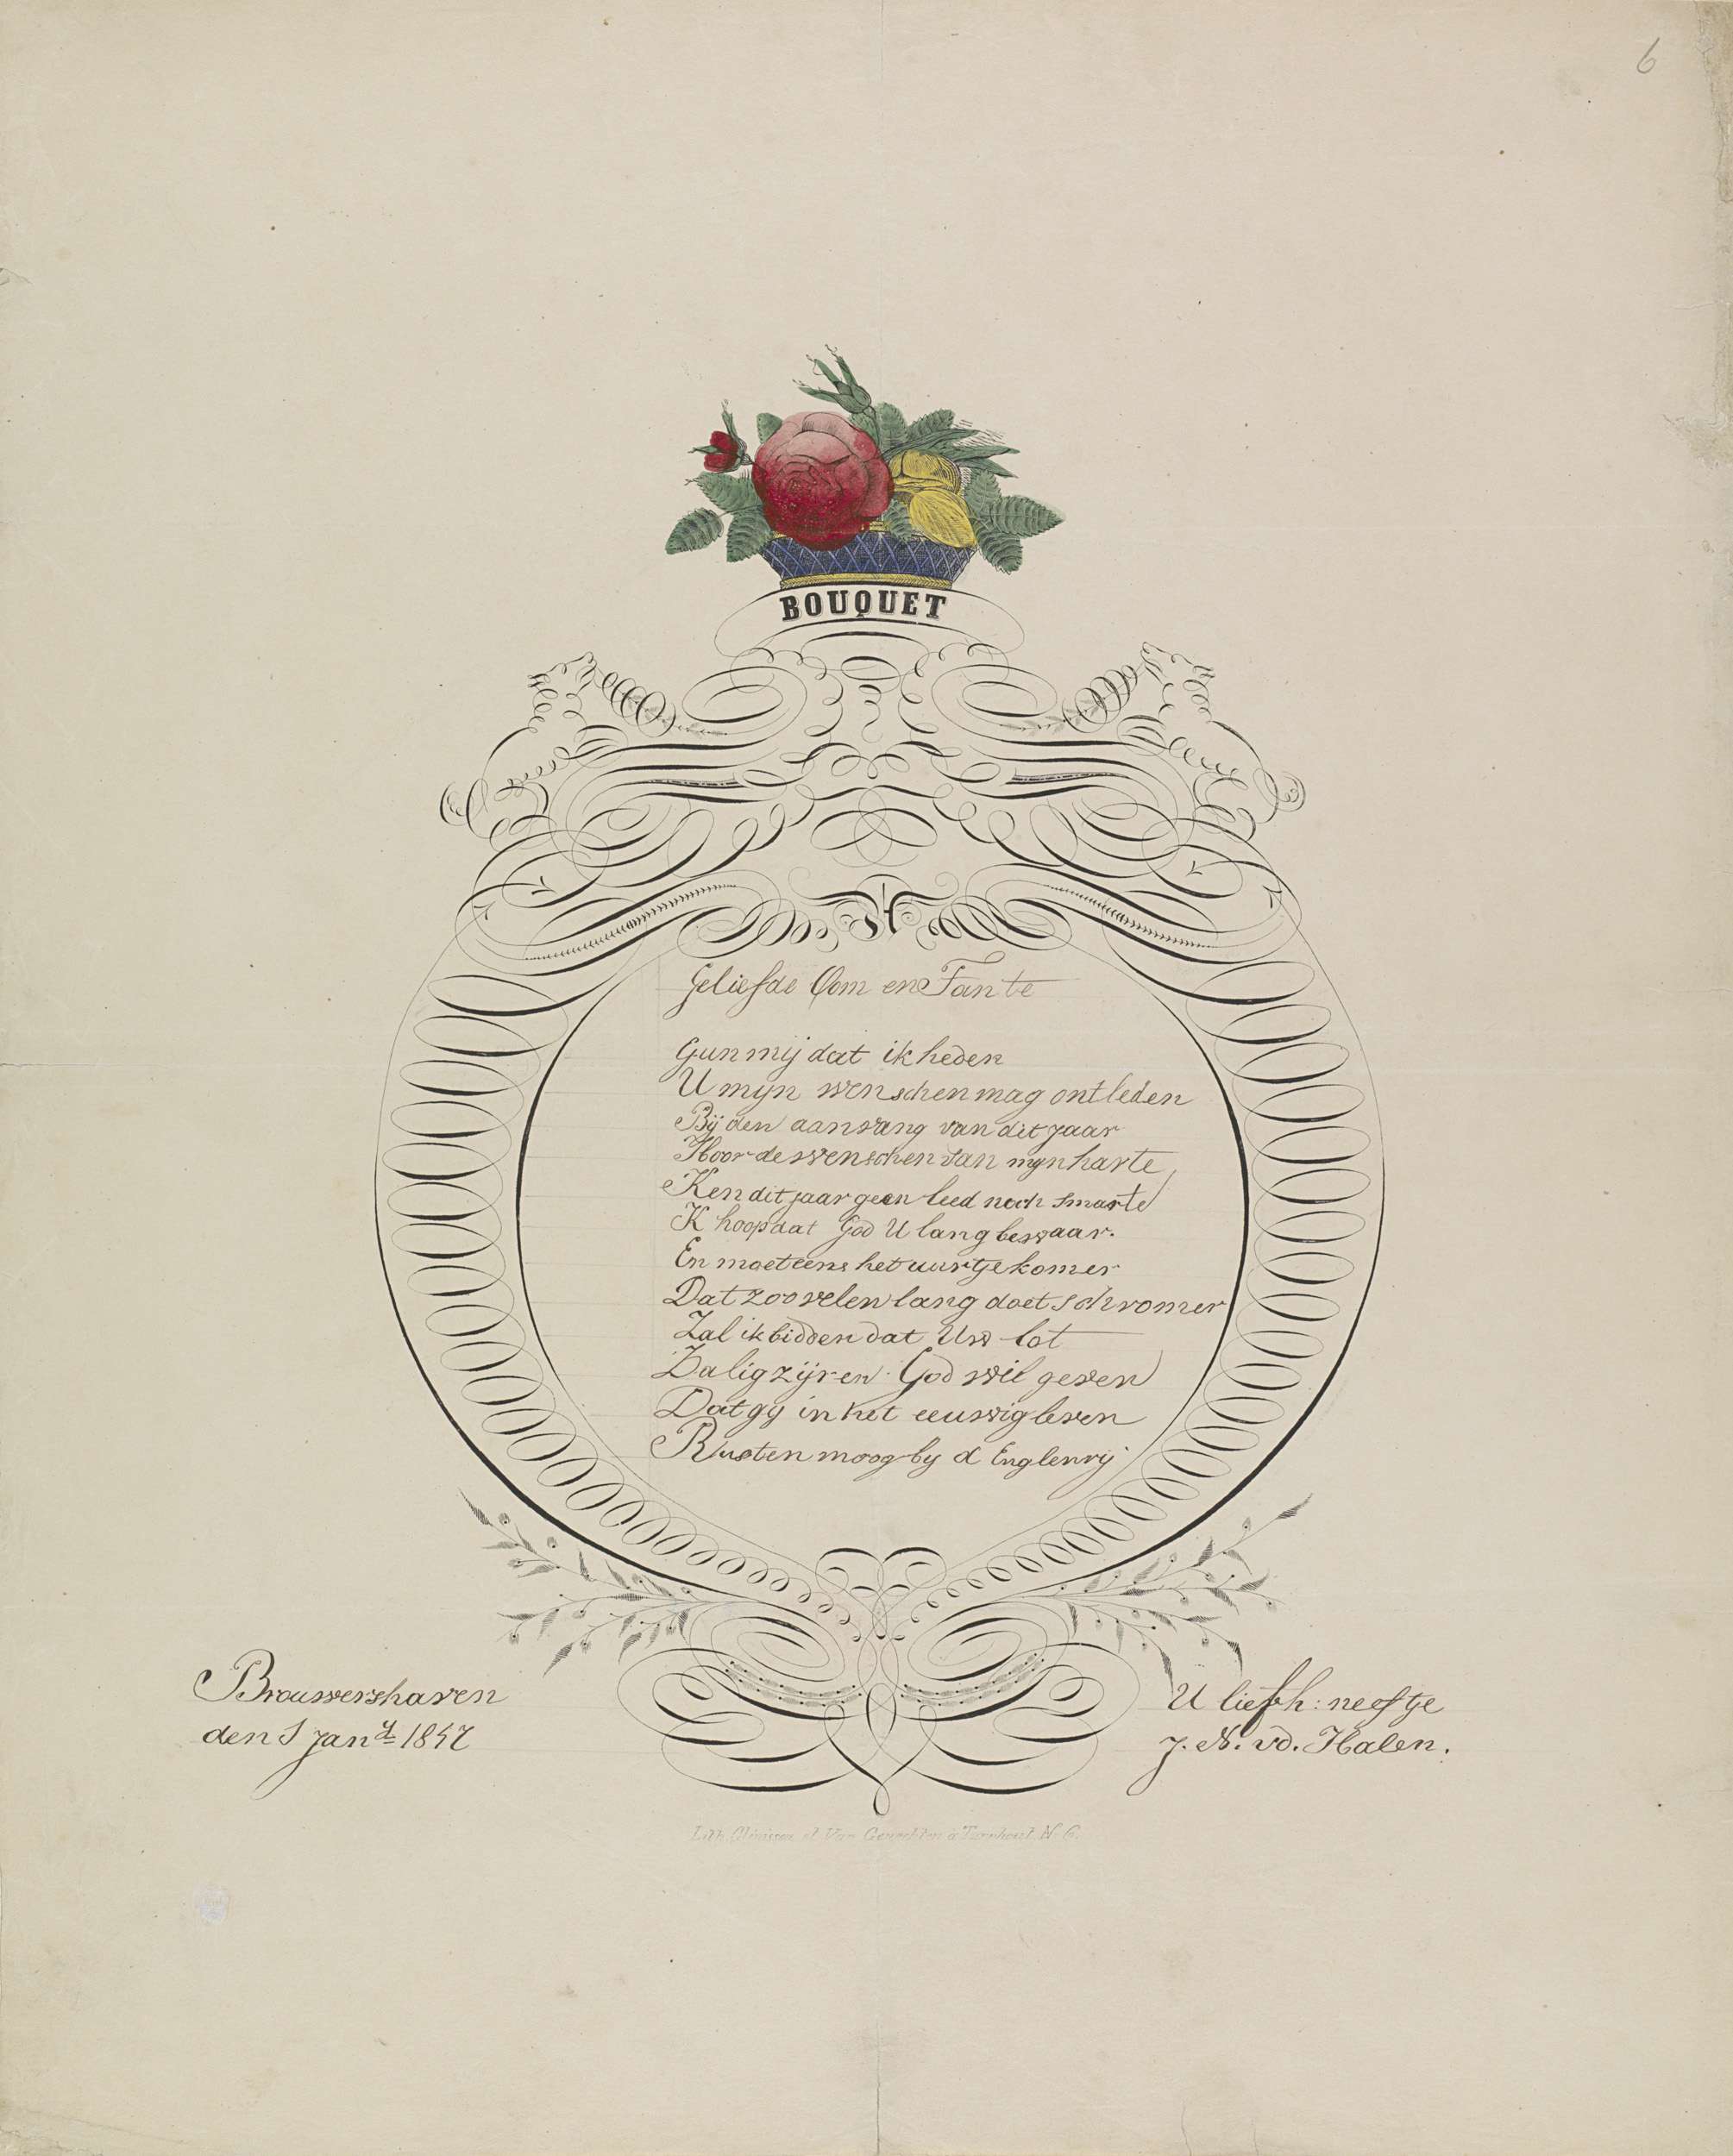 6
BOUQUET
Geliefde Oom en Tante
Gun mij dat ik heden
U mijn wenschen mag ontleden
Bij den aanvang van dit jaar
Hoor de wenschen van mijn harte
Ken dit jaar geen leed noch smarte
K hoop dat God U lang bewaar.
En moet eens het uurtje komen
Dat zoo velen lang doet schromen
Zal ik bidden dat Uw lot
Zalig zij en God wil geven
Dat gy in het eeuwig leven
Rusten moog by d Englenrij
Brouwershaven
den 1 Jany 1857
U liefh: neeftje
J. N. vd. Halen.
Lith. Glénisson et Van Genechten à Turnhout N. 6.